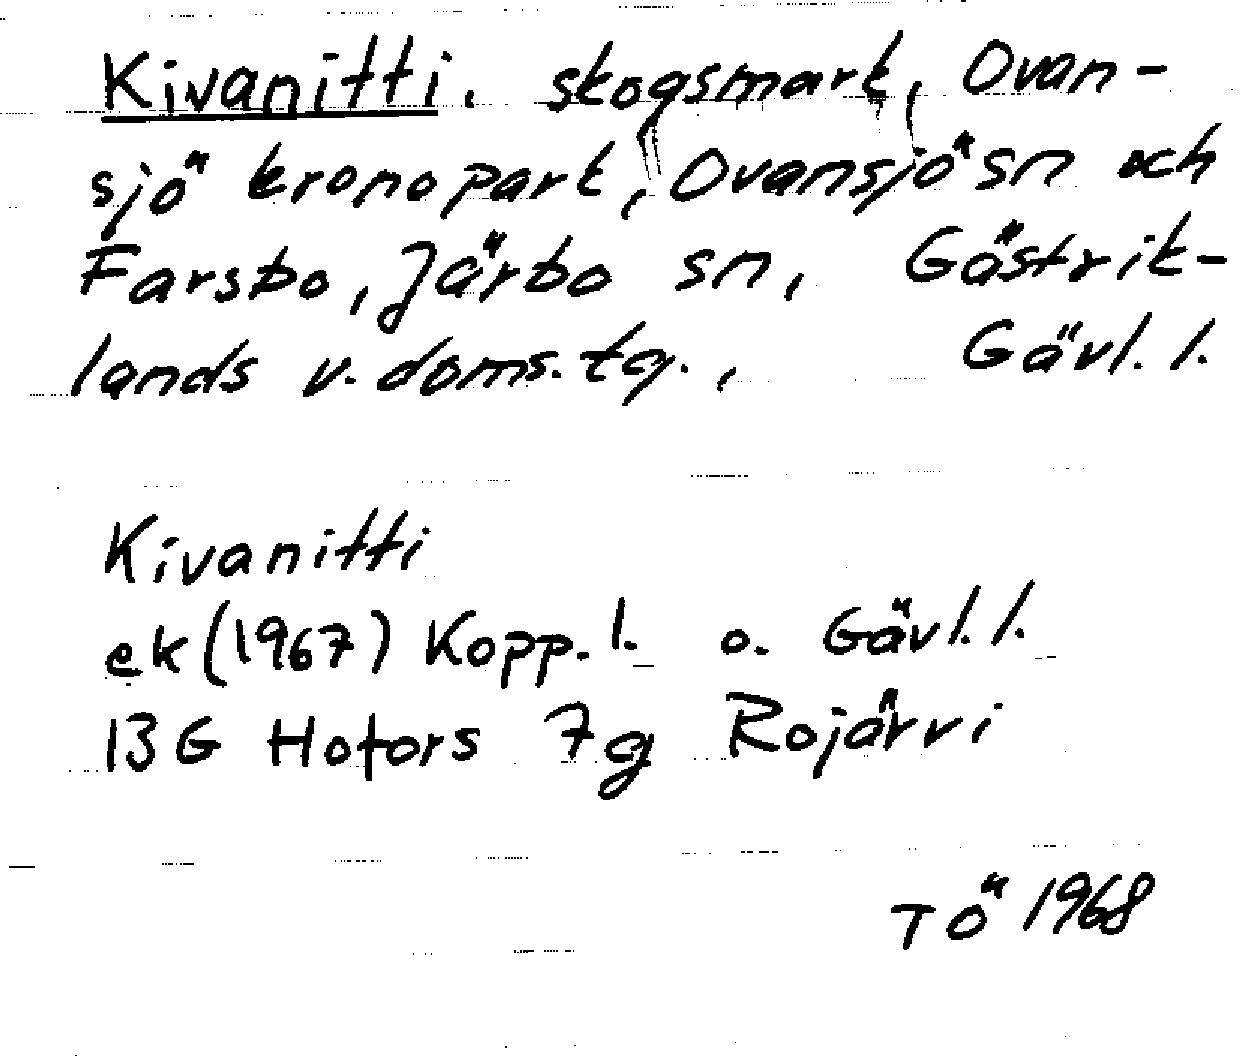 Kivanitti. skogsmark, Ovan-
sjö kronopark, Ovansjö sn och
Farsbo, Järbo sn, Gästrik-
lands v. doms.tg., Gävl. l.
Kivanitti
ek (1967) Kopp. l. o. Gävl. l.
13 G Hofors 7g Rojärvi
TÖ 1968